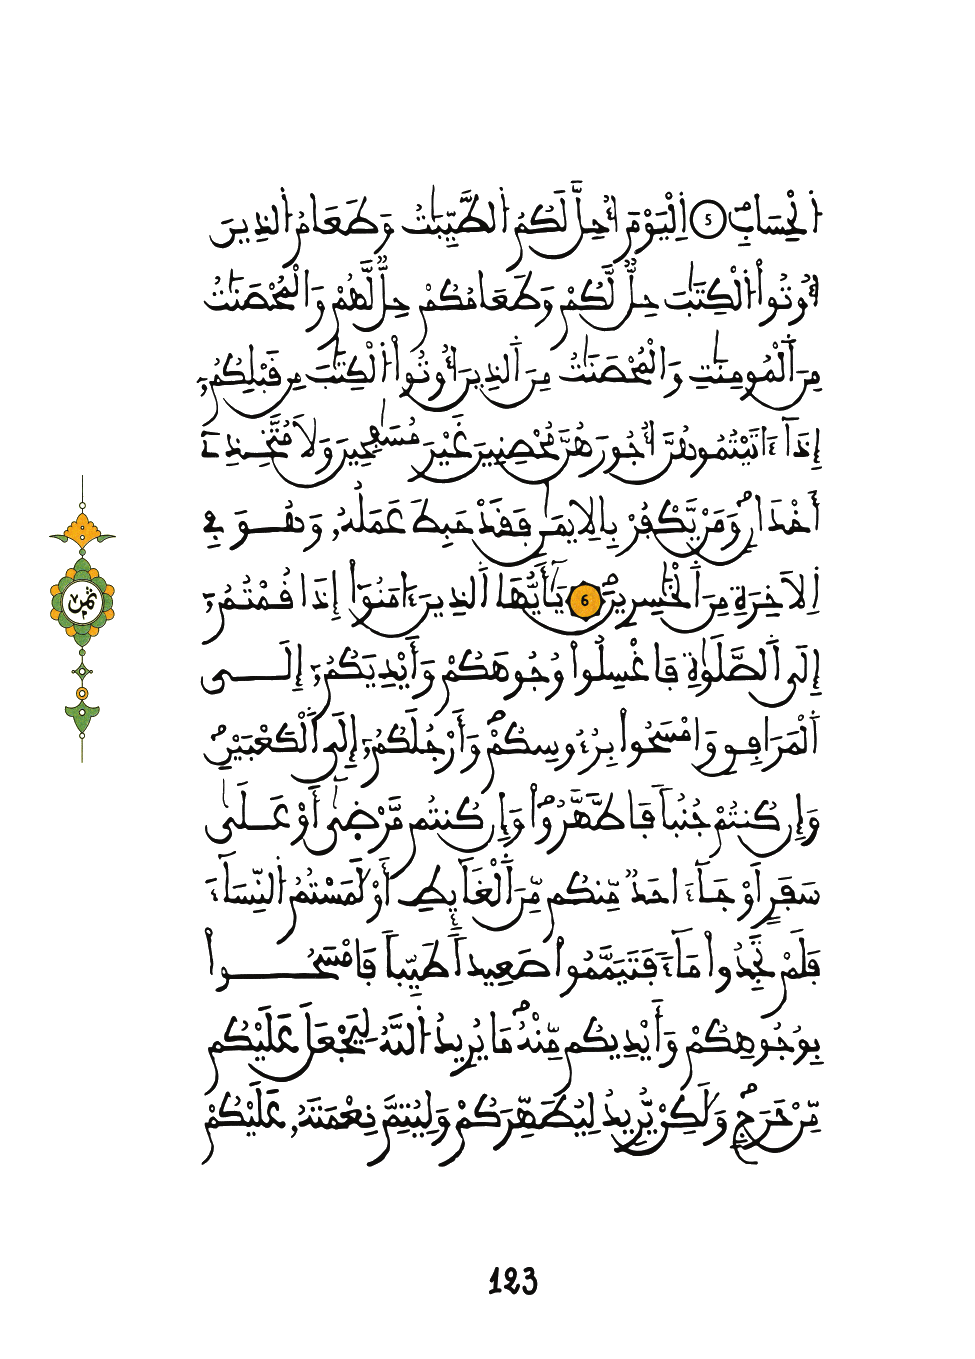 اَ۬لْحِسَابِۖ 5 اِ۬لْيَوْمَ أُحِلَّ لَكُمُ اُ۬لطَّيِّبَٰتُ وَطَعَامُ اُ۬لذِينَ
أُوتُواْ اُ۬لْكِتَٰبَ حِلّٞ لَّكُمْ وَطَعَامُكُمْ حِلّٞ لَّهُمْ وَالْمُحْصَنَٰتُ
مِنَ اَ۬لْمُومِنَٰتِ وَالْمُحْصَنَٰتُ مِنَ اَ۬لذِينَ أُوتُواْ اُ۬لْكِتَٰبَ مِن قَبْلِكُمُۥٓ
إِذَآ ءَاتَيْتُمُوهُنَّ أُجُورَهُنَّ مُحْصِنِينَ غَيْرَ مُسَٰفِحِينَ وَلَا مُتَّخِذِےٓ
أَخْدَانٖۖ وَمَنْ يَّكْفُرْ بِالِايمَٰنِ فَقَدْ حَبِطَ عَمَلُهُۥ وَهُوَ فِے
اِ۬لَاخِرَةِ مِنَ اَ۬لْخَٰسِرِينَۖ 6 يَٰٓأَيُّهَا اَ۬لذِينَ ءَامَنُوٓاْ إِذَا قُمْتُمُۥٓ
إِلَى اَ۬لصَّلَوٰةِ فَاغْسِلُواْ وُجُوهَكُمْ وَأَيْدِيَكُمُۥٓ إِلَى
اَ۬لْمَرَافِقِ وَامْسَحُواْ بِرُءُوسِكُمْۖ وَأَرْجُلَكُمُۥٓ إِلَى اَ۬لْكَعْبَيْنِۖ
وَإِن كُنتُمْ جُنُباٗ فَاطَّهَّرُواْۖ وَإِن كُنتُم مَّرْضَىٰٓ أَوْ عَلَىٰ
سَفَرٍ اَوْ جَآءَ احَدٞ مِّنكُم مِّنَ اَ۬لْغَآئِطِ أَوْ لَٰمَسْتُمُ اُ۬لنِّسَآءَ
فَلَمْ تَجِدُواْ مَآءٗ فَتَيَمَّمُواْ صَعِيداٗ طَيِّباٗ فَامْسَحُواْ
بِوُجُوهِكُمْ وَأَيْدِيكُم مِّنْهُۖ مَا يُرِيدُ اُ۬للَّهُ لِيَجْعَلَ عَلَيْكُم
مِّنْ حَرَجٖۖ وَلَٰكِنْ يُّرِيدُ لِيُطَهِّرَكُمْ وَلِيُتِمَّ نِعْمَتَهُۥ عَلَيْكُمْ
ثمن
123